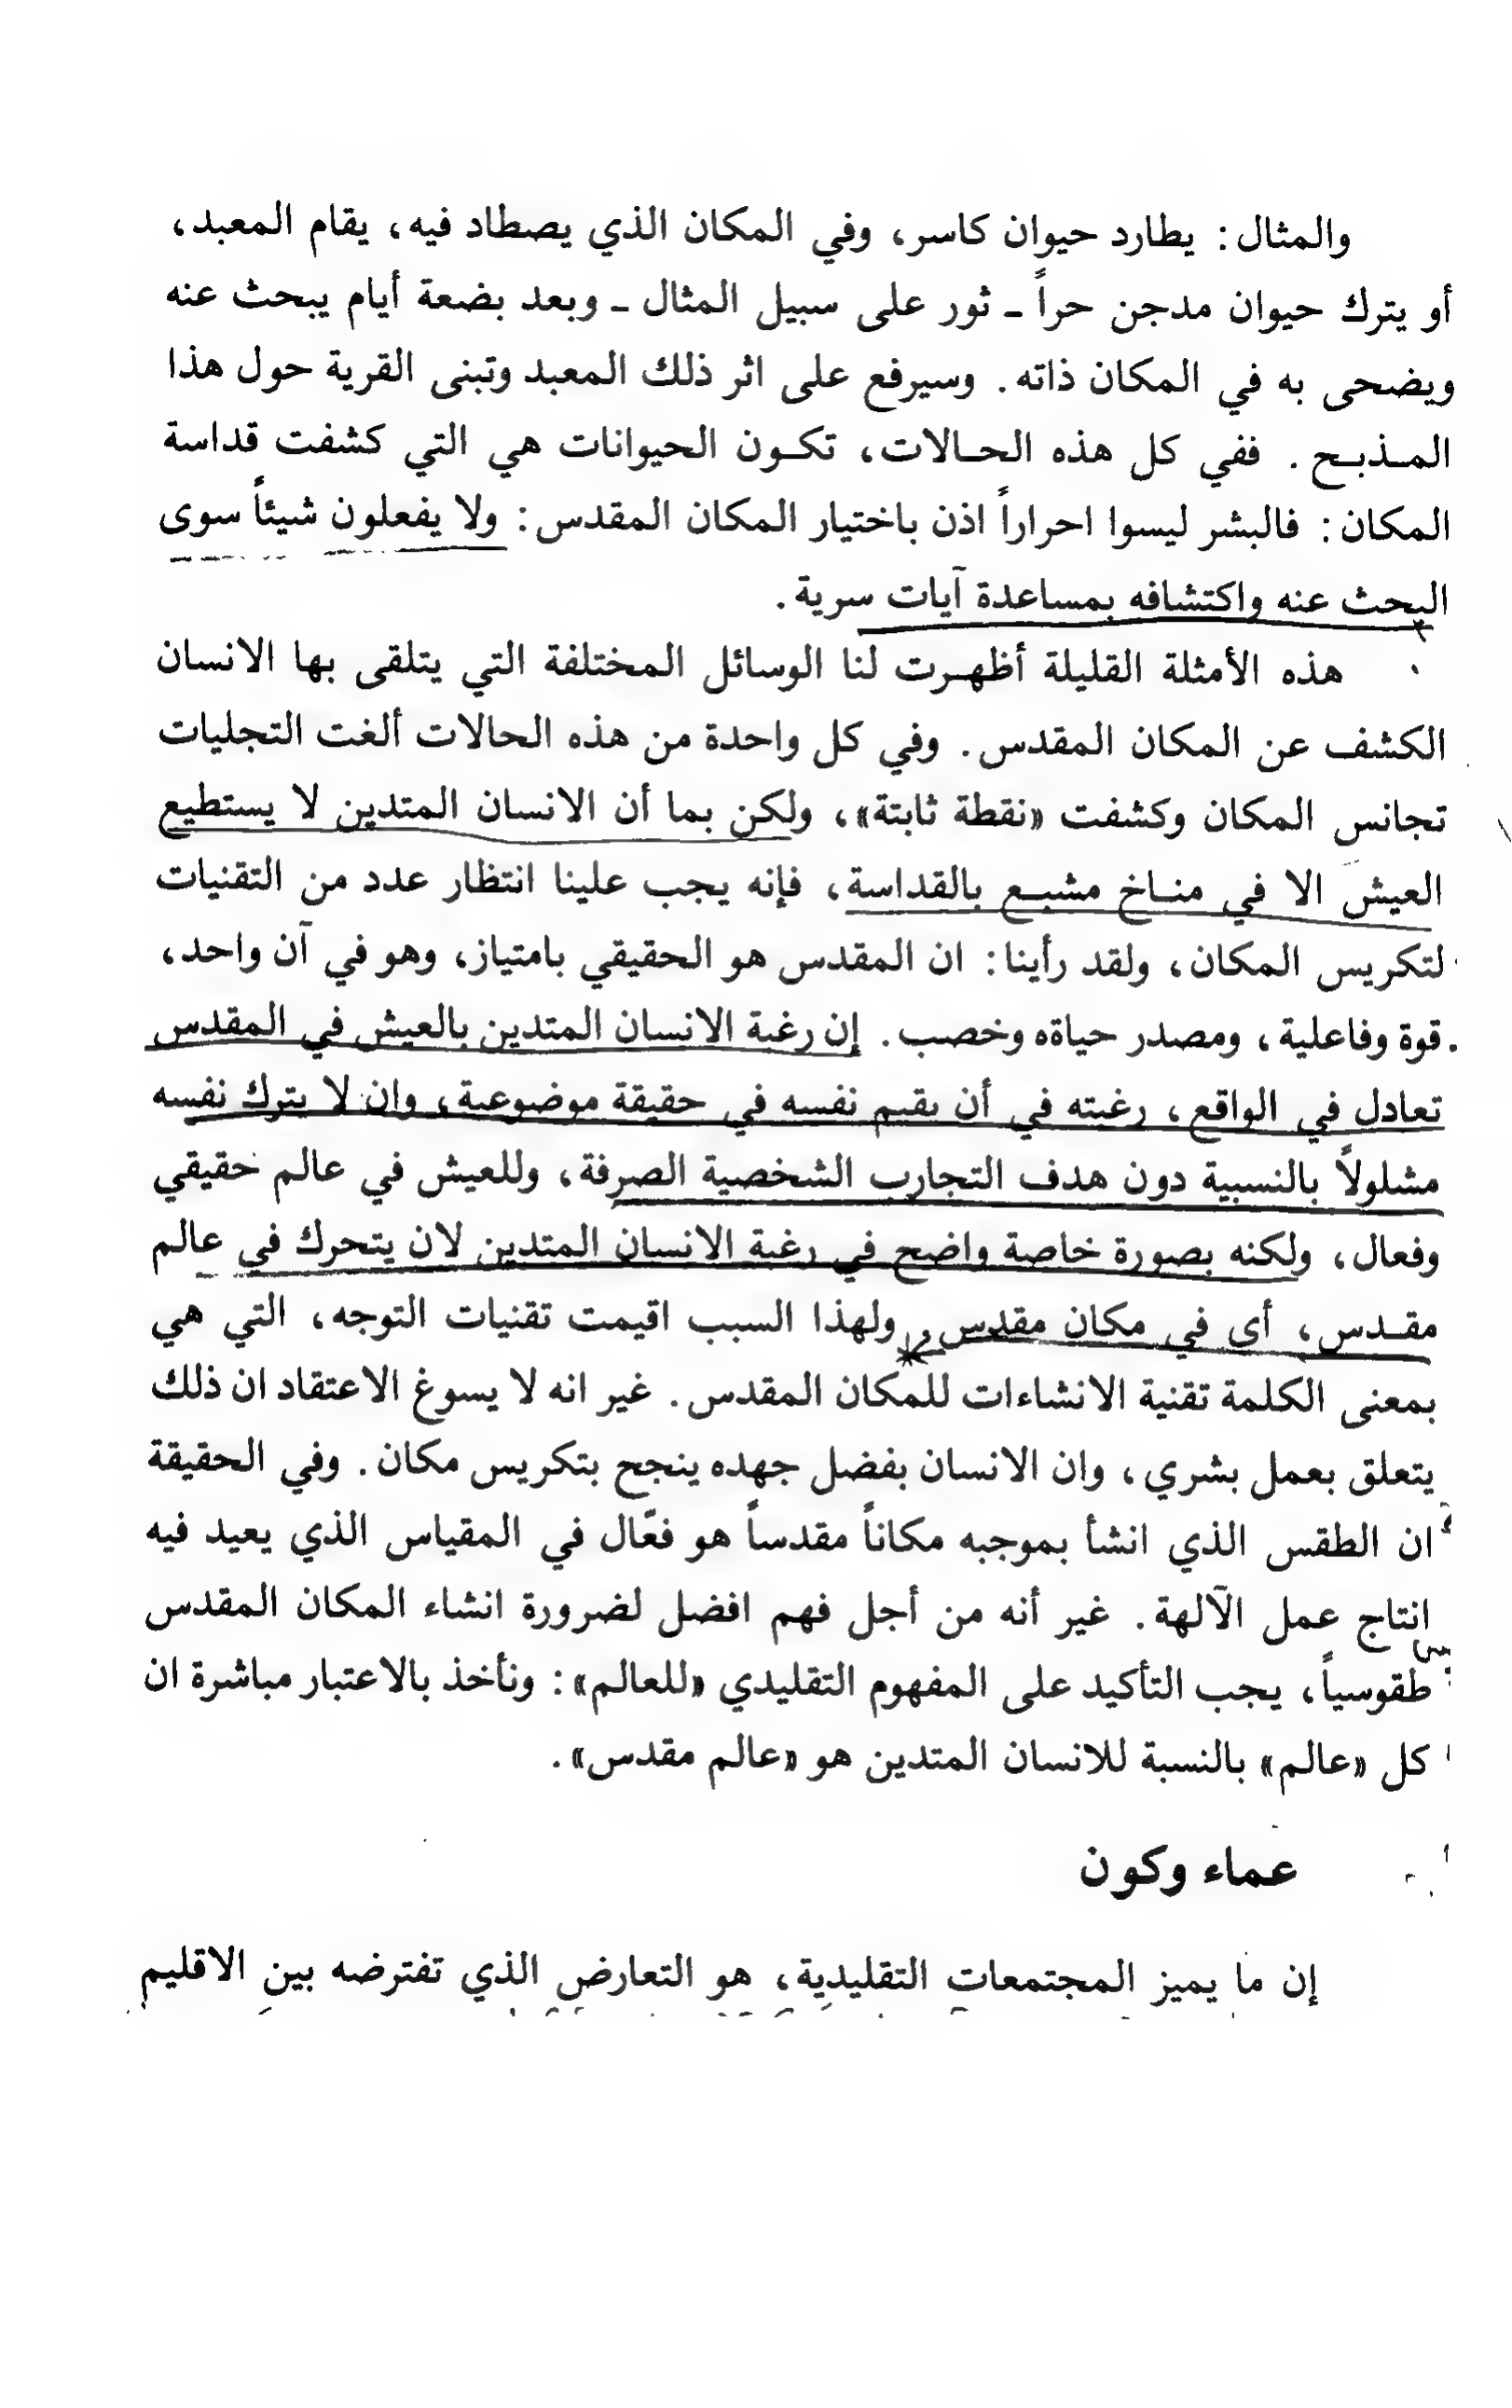 والمثال: يطارد حيوان كاسر، وفي المكان الذي يصطاد فيه، يقام المعبد،
أو يترك حيوان مدجن حراً ـ ثور على سبيل المثال ـ وبعد بضعة أيام يبحث عنه
ويضحى به في المكان ذاته. وسيرفع على اثر ذلك المعبد وتبنى القرية حول هذا
المـذبـح. ففي كل هذه الحـالات، تكـون الحيوانات هي التي كشفت قداسة
المكان: فالبشر ليسوا احراراً اذن باختيار المكان المقدس: ولا يفعلون شيئاً سوى
البحث عنه واكتشافه بمساعدة آيات سرية.
هذه الأمثلة القليلة أظهـرت لنا الوسائل المختلفة التي يتلقى بها الانسان
الكشف عن المكان المقدس. وفي كل واحدة من هذه الحالات ألغت التجليات
تجانس المكان وكشفت «نقطة ثابتة»، ولكن بما أن الانسان المتدين لا يستطيع
العيش الا في منـاخ مشبـع بالقداسة، فإنه يجب علينا انتظار عدد من التقنيات
لتكريس المكان، ولقد رأينا: ان المقدس هو الحقيقي بامتياز، وهو في آن واحد،
قوة وفاعلية، ومصدر حياةه وخصب. إن رغبة الانسان المتدين بالعيش في المقدس
تعادل في الواقع، رغبته في أن يقيم نفسه في حقيقة موضوعية، وان لا يترك نفسه
مشلولاً بالنسبية دون هدف التجارب الشخصية الصرفة، وللعيش في عالم حقيقي
وفعال، ولكنه بصورة خاصة واضح في رغبة الانسان المتدين لان يتحرك في عالم
مقـدس، أي في مكان مقدس. ولهذا السبب اقيمت تقنيات التوجه، التي هي
بمعنى الكلمة تقنية الانشاءات للمكان المقدس. غير انه لا يسوغ الاعتقاد ان ذلك
يتعلق بعمل بشري، وان الانسان بفضل جهده ينجح بتكريس مكان. وفي الحقيقة
ان الطقس الذي انشأ بموجبه مكاناً مقدساً هو فعّال في المقياس الذي يعيد فيه
انتاج عمل الآلهة. غير أنه من أجل فهم افضل لضرورة انشاء المكان المقدس
طقوسياً، يجب التأكيد على المفهوم التقليدي «للعالم»: ونأخذ بالاعتبار مباشرة ان
كل «عالم» بالنسبة للانسان المتدين هو «عالم مقدس».
عماء وكون
إن ما يميز المجتمعات التقليدية، هو التعارض الذي تفترضه بين الاقليم